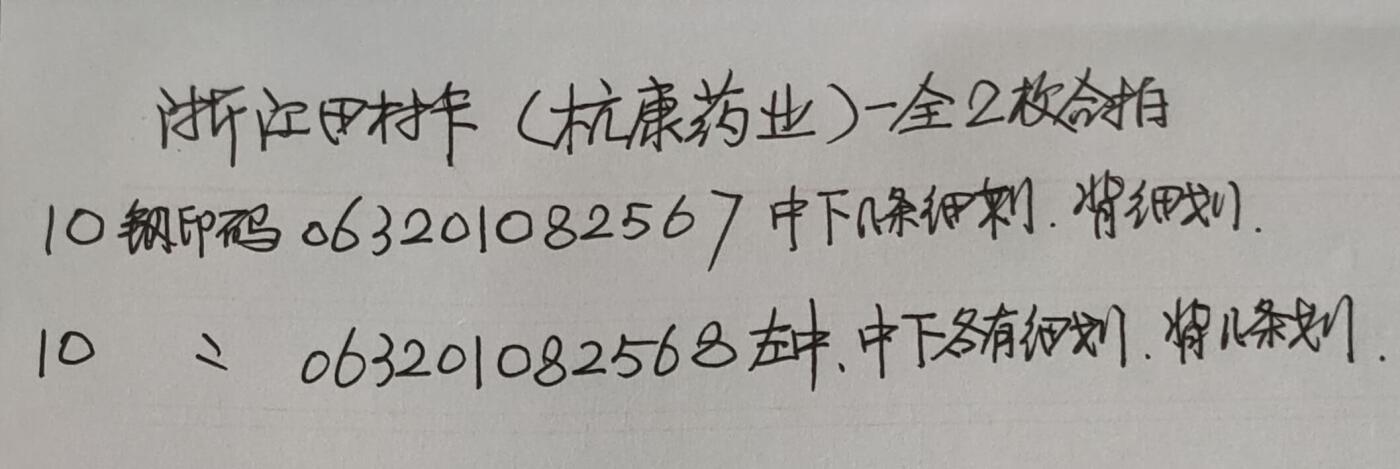 浙江田村卡（杭康药业）-全2枚合拍
10钢印码063201082567中下几条细刺.背细划.
10 〃 063201082568左中、中下各有细划.背几条划.